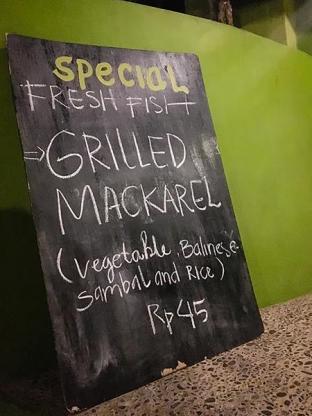 SPECIAL
FRESH FISH
⇒GRILLED
MACKAREL
(vegetable, Balinese
Sambal and Rice)
Rp 45